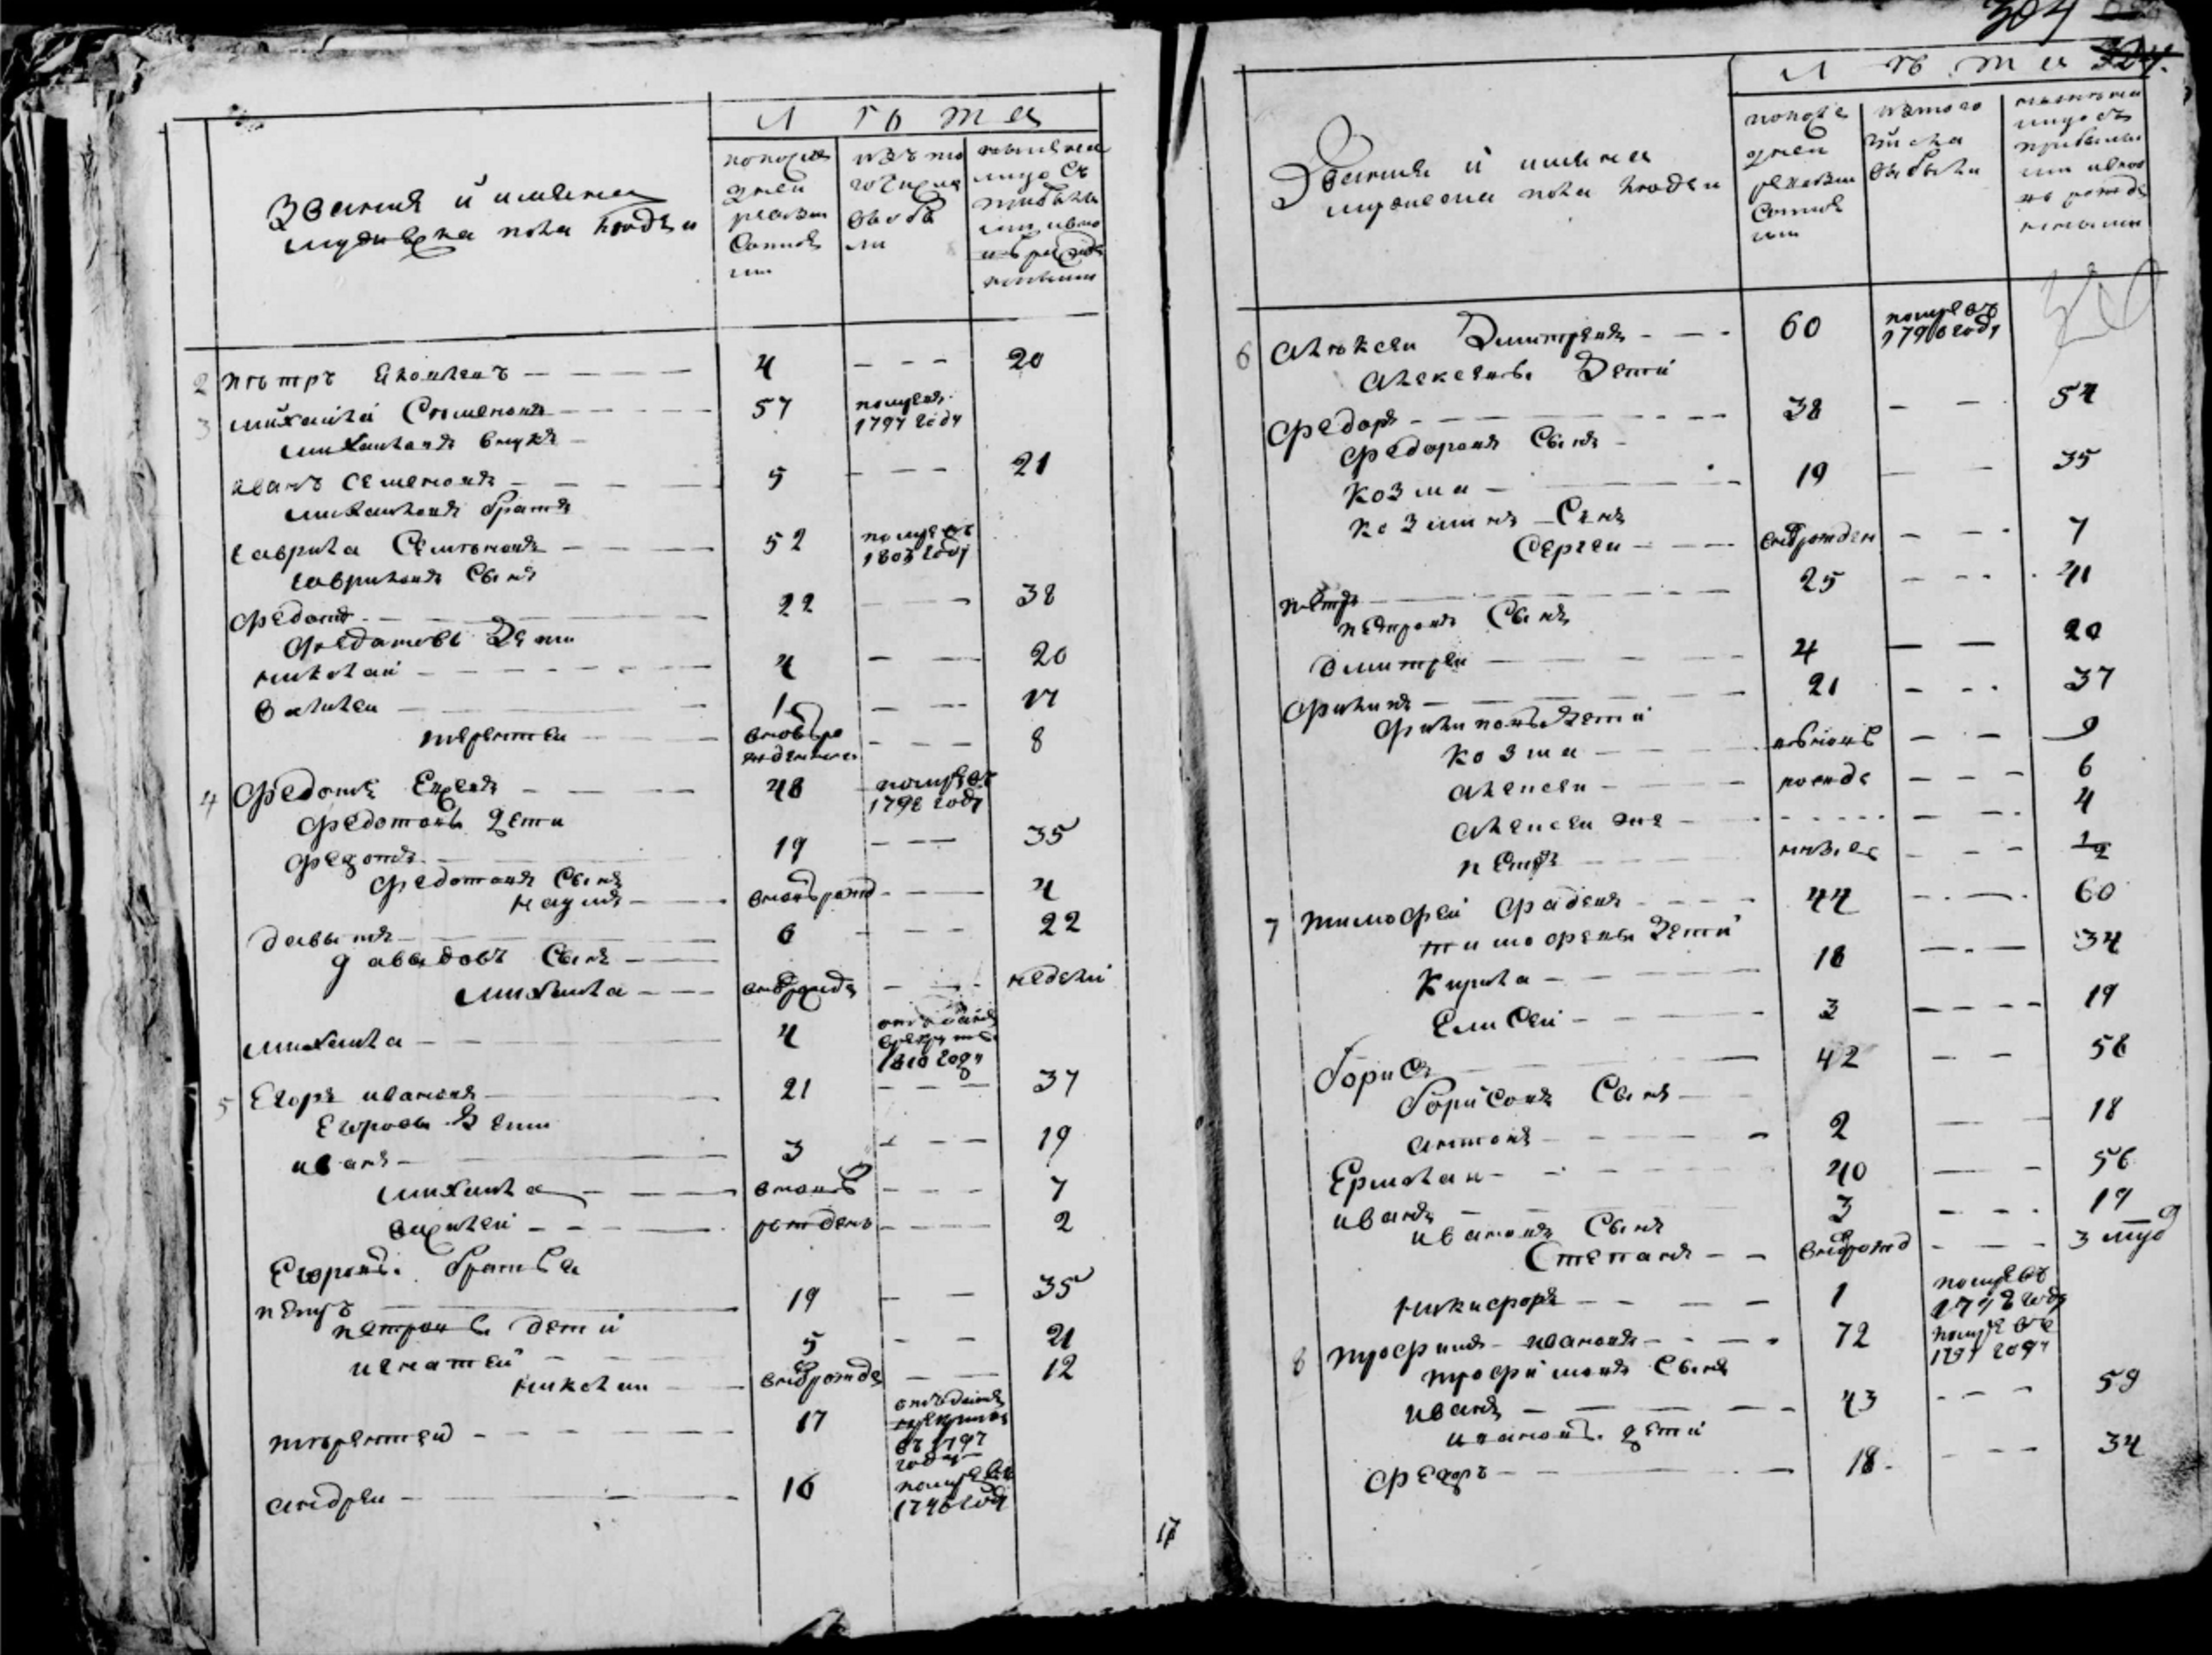 Л ѣ т а
Звания и имена
мужеска пола людеи
по последней ревизии состояли
изъ того числа выбыли
ныне на лицо съ прибылыми и вновь рожденными
2 петръ яковлевъ 4 20
3 михаила Семеновъ 57 померъ 1797 году
михаиловъ внукъ
иванъ семеновъ 5 21
михаиловъ братъ
гаврила Семеновъ 52 померъ въ 1803 году
гавриловъ Сынъ
федотъ 22 38
федотовы дети
николаи 4 20
василеи 1 17
терентеи вновь рожденные 8
4 федотъ 48 померъ въ 1798 году
федотовы дети
19 35
федотовъ Сынъ
наумъ вновь рожд 4
давыдъ 6 22
давыдовъ Сынъ
михаила внов рожде недели
михаила 4 отъданъ в рекруты 1810 году
5 Егоръ ивановъ 21 37
Егоровы дети
иванъ 3 19
михаила вновь 7
василеи рожденъ 2
Егоровы братья
петръ 19 35
петровы дети
игнатеи 5 21
николаи внов рожде 12
терентеи 17 отъданъ в рекруты въ 1797 году
андреи 16 померъ въ 1796 году
17
304
324.
Л ѣ т а
Звания и имена
мужеска пола людеи
по последней ревизии состояли
изъ того числа выбыли
ныне на лицо съ прибылыми и вновь рожденными
6 алексеи Дмитреевъ 60 померъ въ 1796 году
алексеевы Дети
федоръ 38 54
федоровъ Сынъ
козма 19 35
козминъ Сынъ
Сергеи внов рожден 7
петръ 25 41
петровъ Сынъ
дмитреи 4 20
филипъ 21 37
филиповы дети
козма вновь 9
алексеи рожде 6
алексеи же 4
петръ 1/2
7 тимофеи фадеевъ 44 60
тимофеевы дети
Кирила 18 34
Елисеи 3 19
борисъ 42 58
борисовъ Сынъ
антонъ 2 18
Ермолаи 40 56
иванъ 3 19
ивановъ Сынъ
Степанъ внов рожд
никифоръ 1 померъ въ году
8 трофимъ ивановъ 72 померъ въ 1797 году
трофимовъ Сынъ
иванъ 43 59
ивановы дети
федоръ 18 34